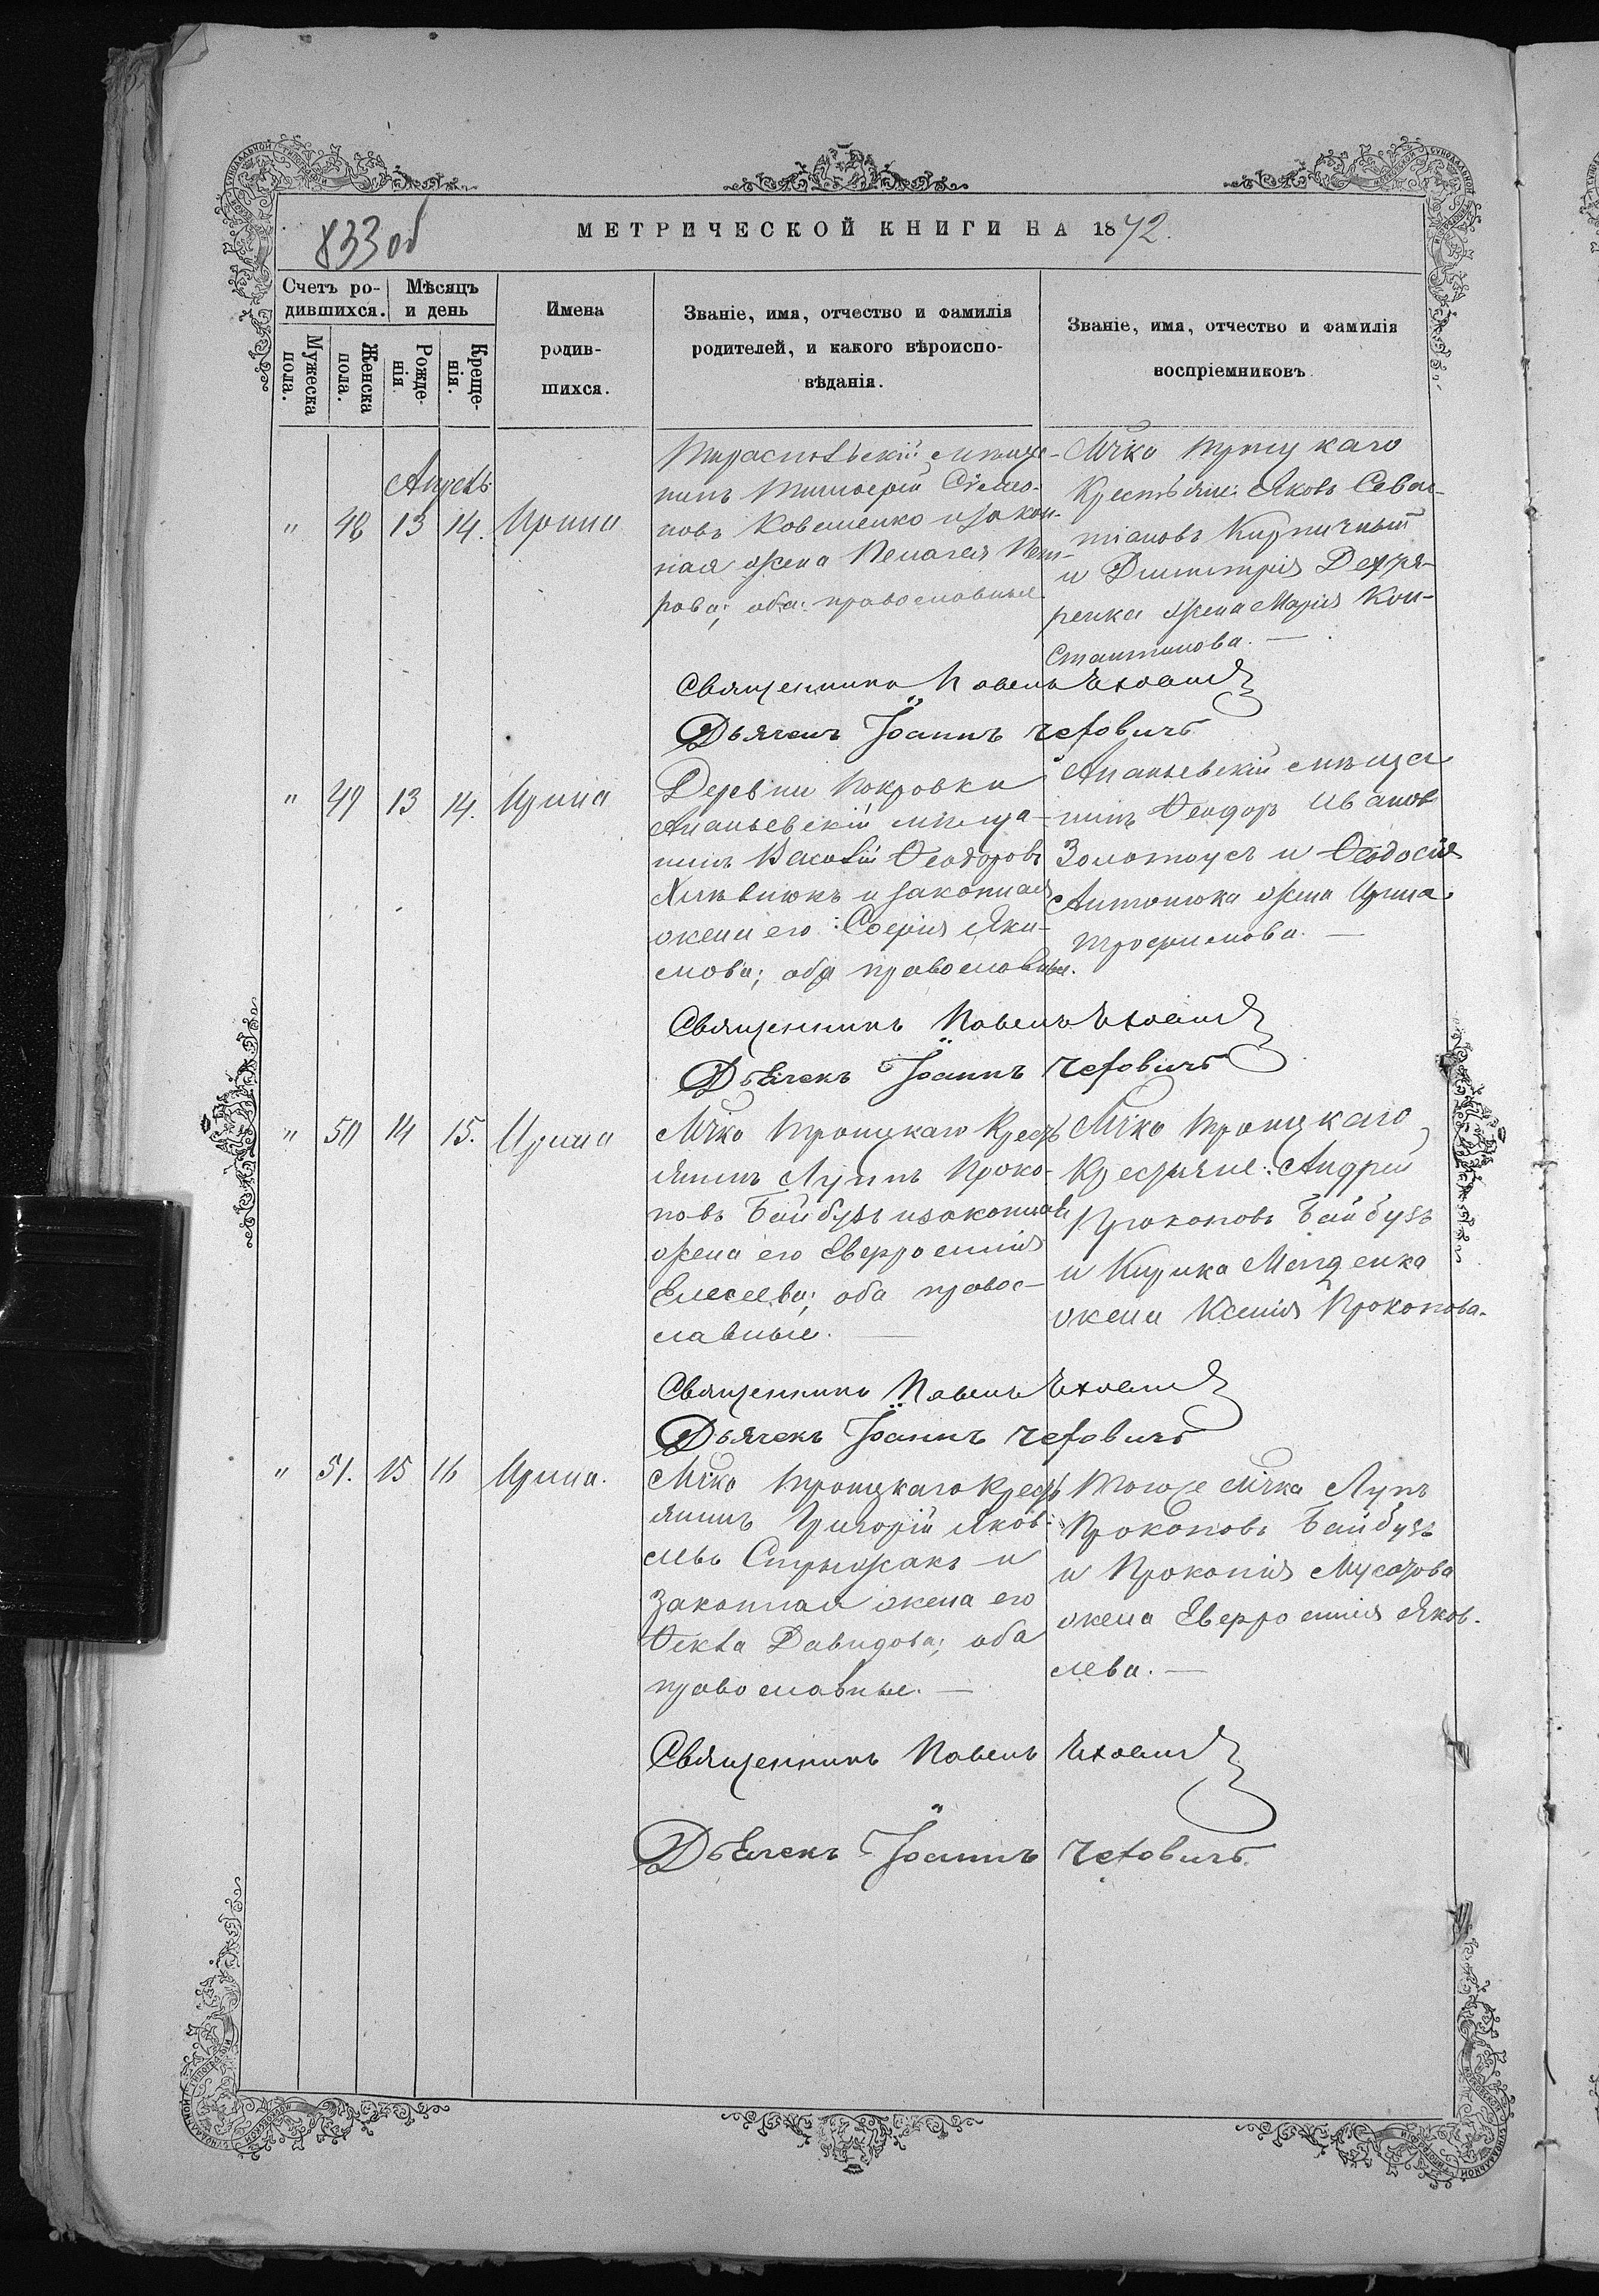 833 об
МЕТРИЧЕСКОЙ КНИГИ НА 1872.
Счетъ ро-
дившихся.
Мѣсяцъ
и день
Мужеска
пола.
Женска
пола.
Рожде-
нія.
Креще-
нія.
Имена
родив-
шихся.
Званіе, имя, отчество и фамилія
родителей, и какого вѣроиспо-
вѣданія.
Званіе, имя, отчество и фамилія
воспріемниковъ.
Апрель
" 48 13 14. Ирина
Тираспольскій мѣща-
нинъ Тимофей Симо-
новъ Ковшенко и закон-
ная жена Пелагея Пет-
рова; оба православные.
Мчка Троицкаго
Крестьяне: Яковъ Севас-
тіановъ Кирпичный
и Димитрія
жена Марія Кон-
стантинова. —
Священникъ Павелъ
Дьячекъ Іоаннъ
" 49 13 14. Ирина
Деревни Покровки
Ананьевскій мѣща-
нинъ Василій Ѳеодоровъ
и законная
жена его: Софія Яки-
мова; оба православные.
Ананьевскій мѣща
нинъ Ѳеодоръ Ивановъ
Золотоусъ и Ѳеодосія
Антонюка жена Ирина
Трофимова. —
Священникъ Павелъ
Дьячекъ Іоаннъ
" 50 14 15. Ирина
Мчка Троицкаго Крестъ
янинъ Луппъ Проко-
повъ Байбузъ и законная
жена его Евфросинія
Елисеева; оба правос-
лавные. —
Мчка Троицкаго
Крестьяне: Андрей
Прокоповъ Байбузъ
и Кирика
жена Ксенія Прокопова.
Священникъ Павелъ
Дьячекъ Іоаннъ
" 51. 15 16 Ирина.
Мчка Троицкаго Крестъ
янинъ Григорій Яков-
левъ Стрижакъ и
законная жена его
Ѳекла Давидова; оба
православные. —
Тогоже мчка Лупъ
Прокоповъ Байбузъ
и Прокопія
жена Евфросинія Яков-
лева. —
Священникъ Павелъ
Дьячекъ Іоаннъ